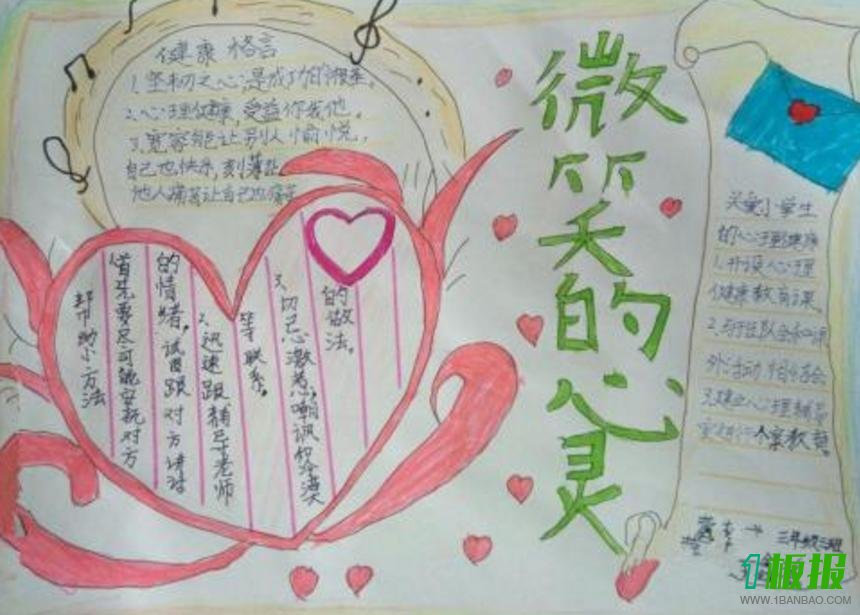 健康格言
1.坚韧之心是成功的根基。
2.心理健康,受益你我他。
3.宽容能让别人愉悦,
自己也快乐,刻薄让
他人痛苦让自己也痛苦
微笑的心灵
帮助小方法
首先要尽可能安抚对方
的情绪,试图跟对方讲话
2、迅速跟辅导老师
等联系。
3、切忌激惹、嘲讽、冷漠
的做法。
关爱小学生
的心理健康
1.开设心理
健康教育课。
2.与班队会和课
外活动相结合
3.建立心理辅导
室进行个案教育。
三年级三班
1板报
WWW.1BANBAO.COM